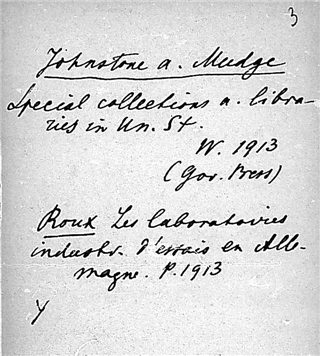 3
Johnstone a. Mudge
Special collections a. libra-
ries in Un. St.
W. 1913
(Gov. Press)
Roux Les laboratoires
industr. d'essais en Alle-
magne. P. 1913
Y